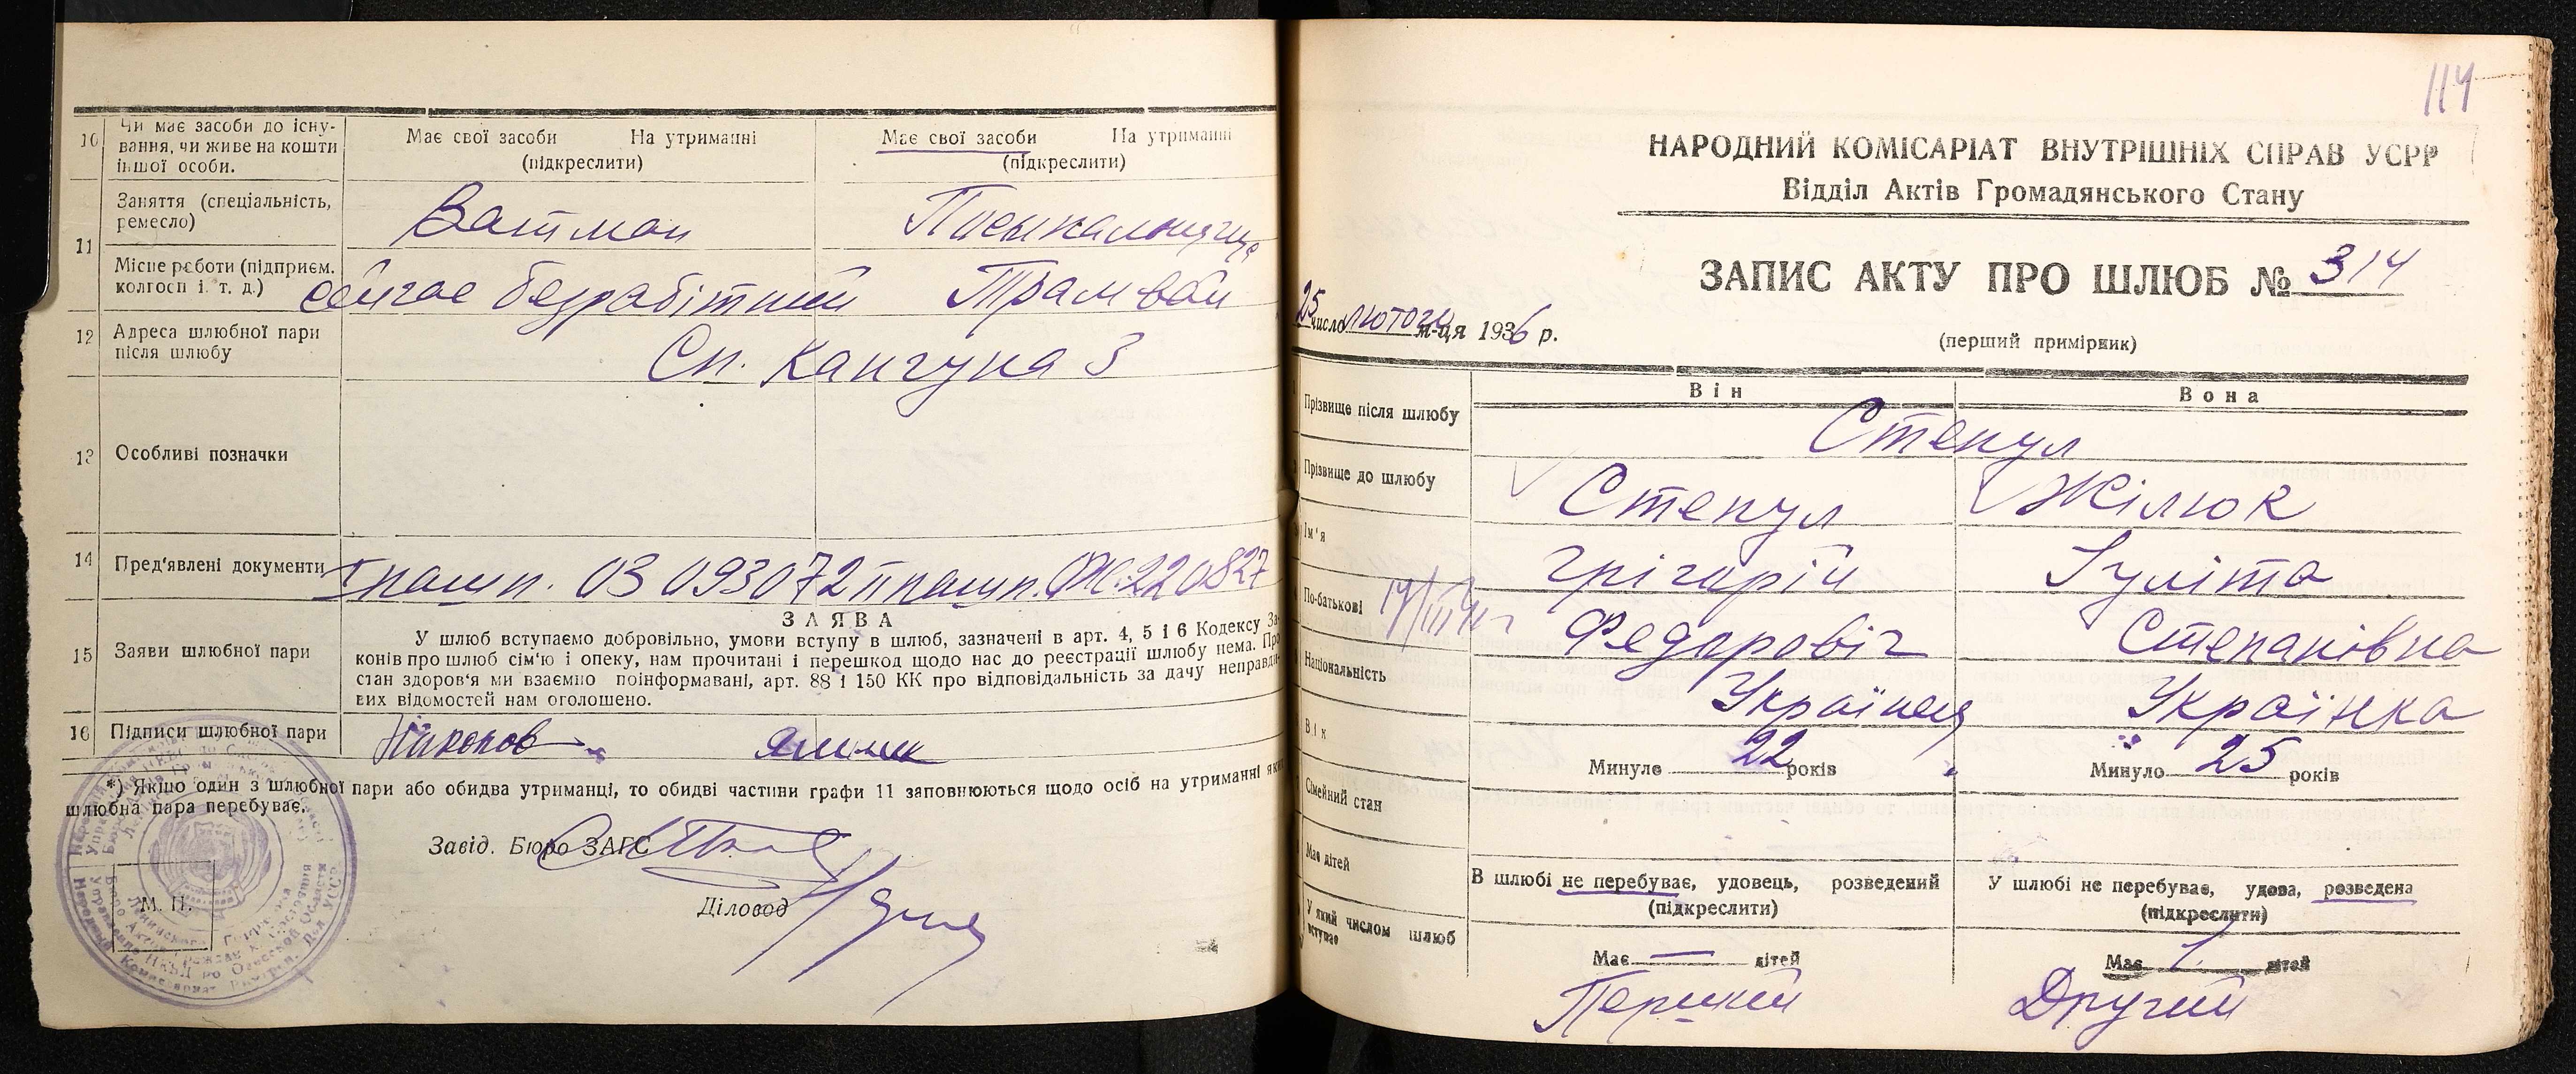 10 Чи має засоби до існу-
вання, чи живе на кошти
іншої особи.
Має свої засоби На утриманні
(підкреслити)
Має свої засоби На утриманні
(підкреслити)
11 Заняття (спеціальність,
ремесло)
Ватман
Місце роботи (підприєм.
колгосп і т. д.)
безрабітний
Трамвай
12 Адреса шлюбної пари
після шлюбу
Сп. 3
13 Особливі позначки
14 Пред'явлені документи
I пашп. 03 093072 II пашп. ОЖ. 220827
15 Заяви шлюбної пари
ЗАЯВА
У шлюб вступаємо добровільно, умови вступу в шлюб, зазначені в арт. 4, 5 і 6 Кодексу За-
конів про шлюб сім'ю і опеку, нам прочитані і перешкод щодо нас до реєстрації шлюбу нема. Про
стан здоров'я ми взаємно поінформавані, арт. 88 і 150 КК про відповідальність за дачу неправди-
вих відомостей нам оголошено.
16 Підписи шлюбної пари
*) Якщо один з шлюбної пари або обидва утриманці, то обидві частини графи 11 заповнюються щодо осіб на утриманні яких
шлюбна пара перебуває.
Завід. Бюро ЗАГС
Діловод
М. П.
114
НАРОДНИЙ КОМІСАРІАТ ВНУТРІШНІХ СПРАВ УСРР
Відділ Актів Громадянського Стану
ЗАПИС АКТУ ПРО ШЛЮБ № 314
25 число лютого м-ця 1936 р.
(перший примірник)
Він
Вона
Прізвище після шлюбу
Степул
Прізвище до шлюбу
Степул
Жілюк
Ім'я
Грігорій
Іуліта
По-батькові
Федоровіч
Степанівна
Національність
Українец
Українка
Вік
Минуле 22 років
Минуло 25 років
Сімейний стан
В шлюбі не перебуває, удовець, розведений
(підкреслити)
У шлюбі не перебуває, удова, розведена
(підкреслити)
Має дітей
Має — дітей
Має 1 дітей
У який числом шлюб
вступає
Перший
Другий